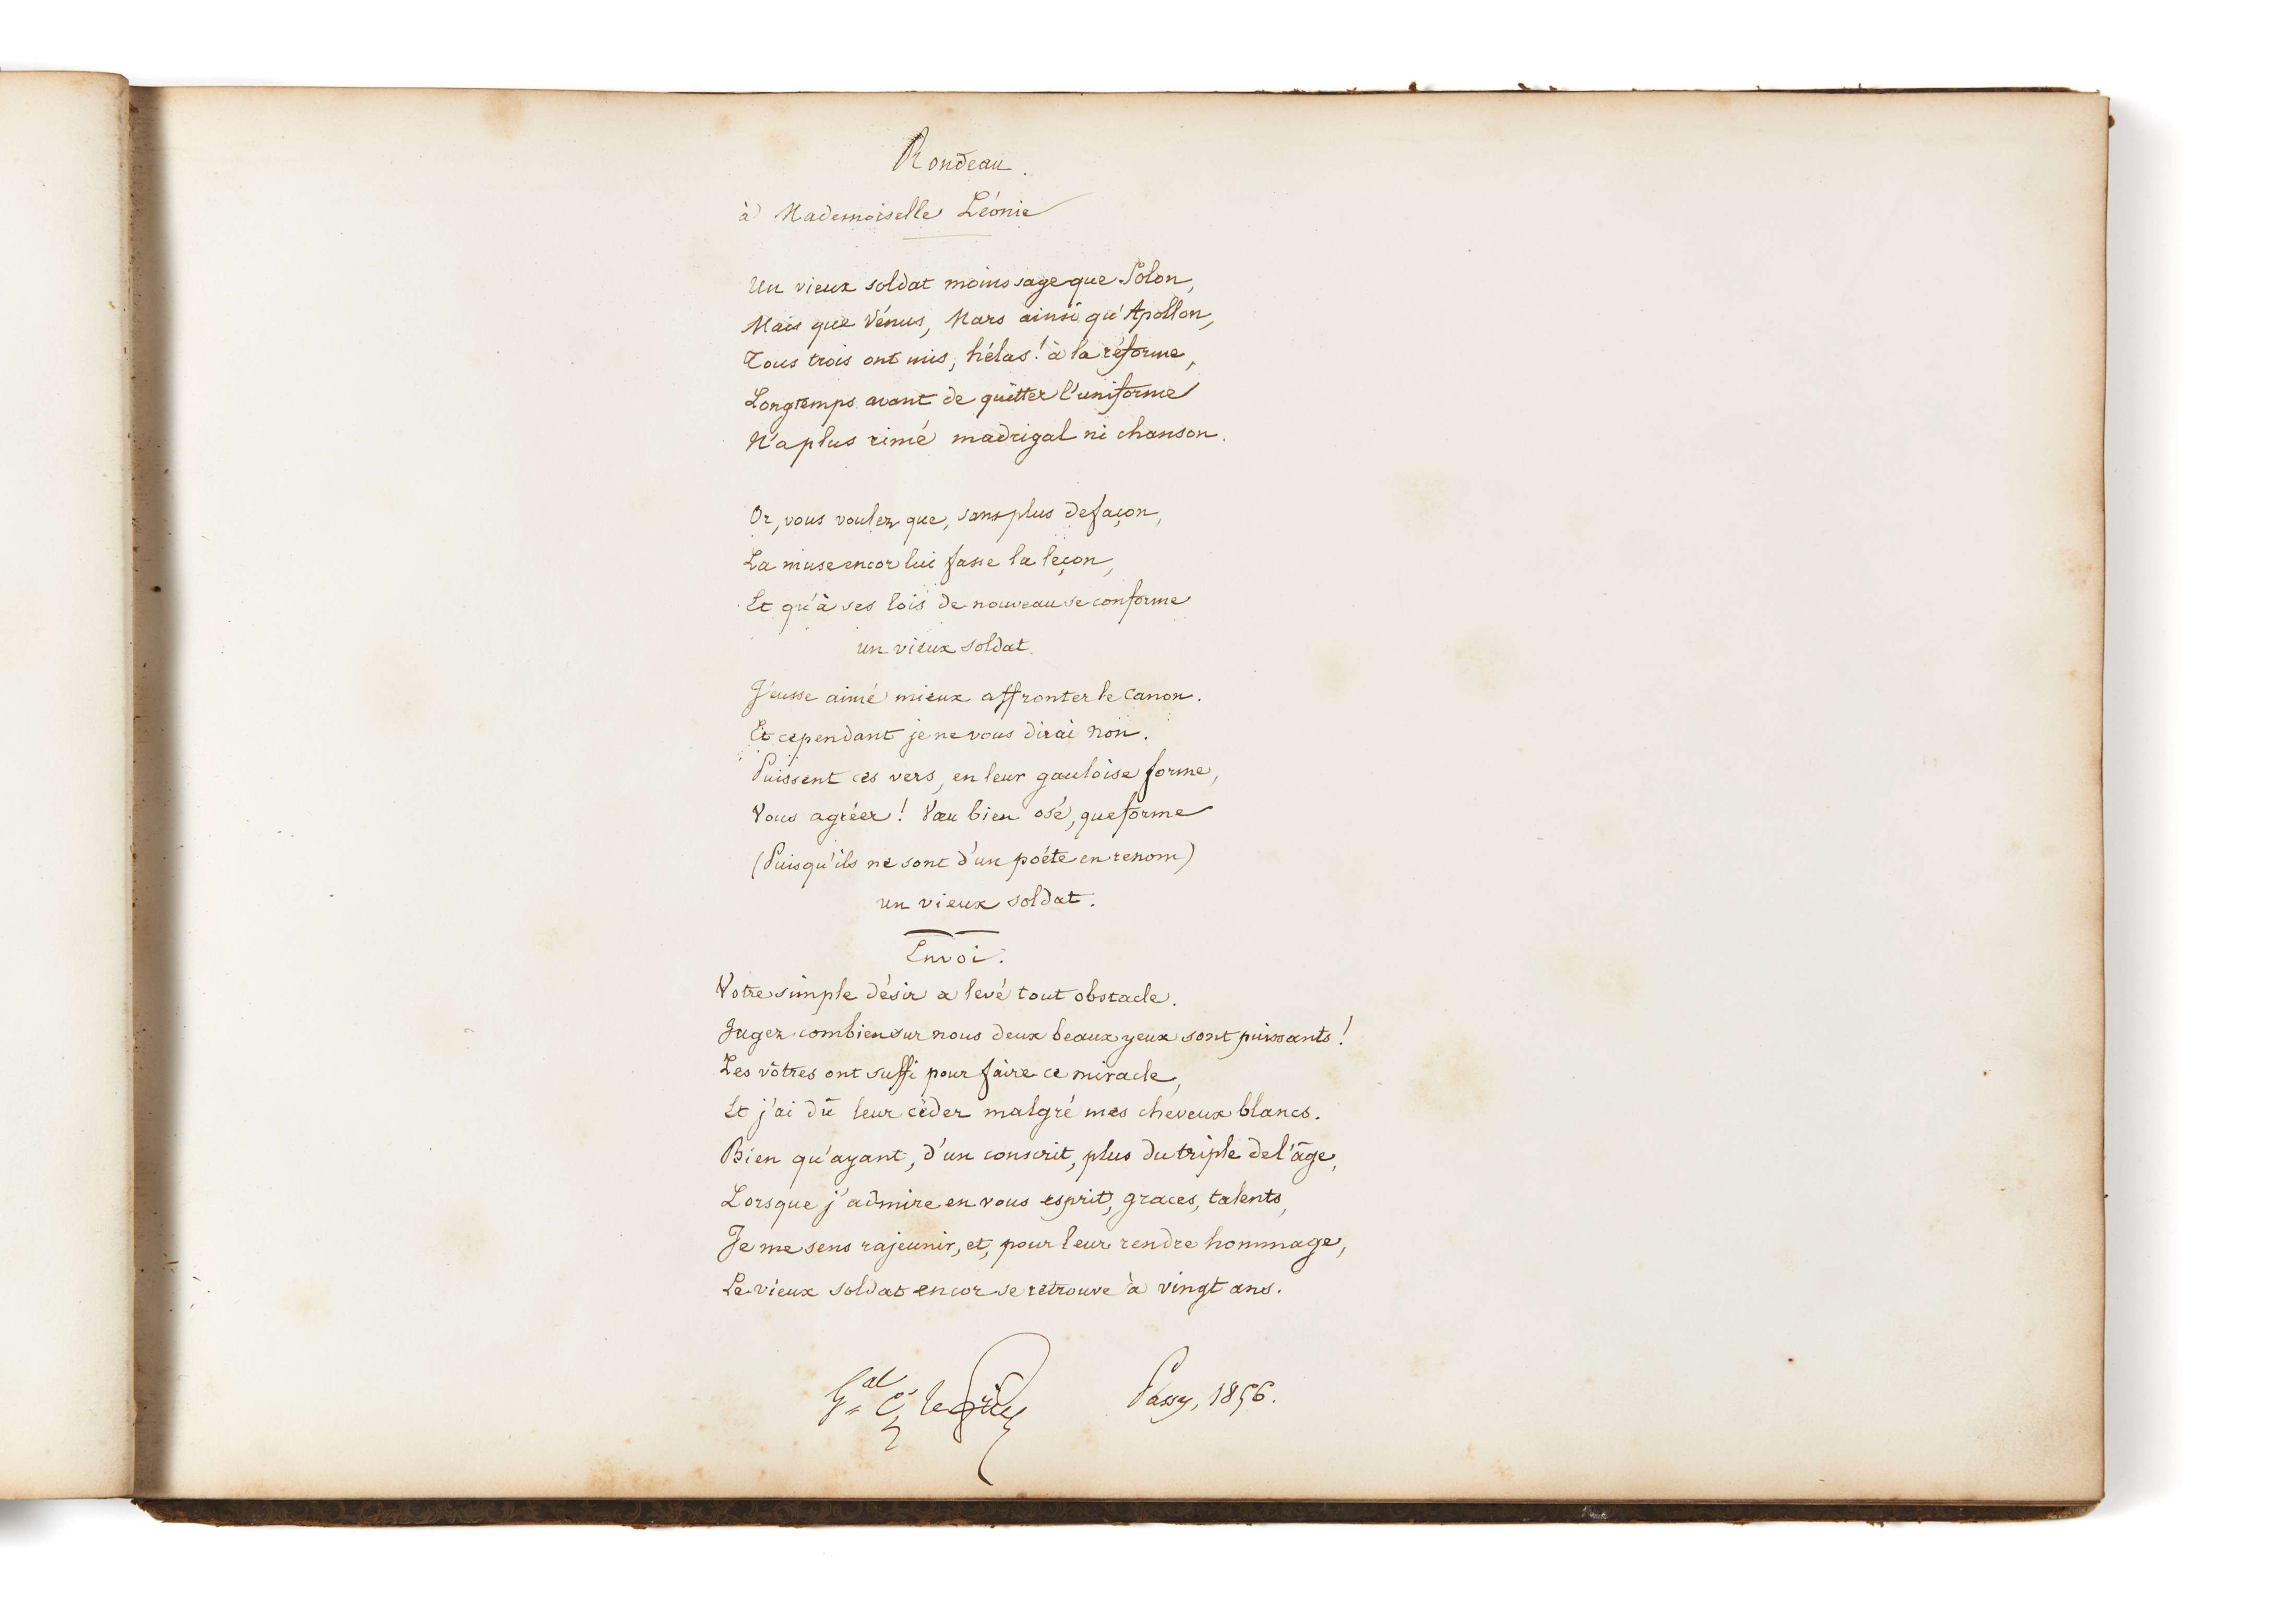 Rondeau.
à Mademoiselle Léonie
Un vieux soldat moins sage que Solon,
Mais que Vénus, Mars ainsi qu'Apollon,
Tous trois ont mis, hélas! à la réforme,
Longtemps avant de quitter l'uniforme
N'a plus rimé madrigal ni chanson.
Or, vous voulez que, sans plus de façon,
La muse encor lui fasse la leçon,
Et qu'à ses lois de nouveau se conforme
un vieux soldat.
J'eusse aimé mieux affronter le canon.
Et cependant je ne vous dirai non.
Puissent ces vers, en leur gauloise forme,
Vous agréer! Vœu bien osé, que forme
(Puisqu'ils ne sont d'un poéte en renom)
un vieux soldat.
Envoi.
Votre simple désir a levé tout obstacle.
Jugez combien sur nous deux beaux yeux sont puissants!
Les vôtres ont suffi pour faire ce miracle,
Et j'ai dû leur céder malgré mes cheveux blancs.
Bien qu'ayant, d'un conscrit, plus du triple de l'âge,
Lorsque j'admire en vous esprit, graces, talents,
Je me sens rajeunir, et, pour leur rendre hommage,
Le vieux soldat encor se retrouve à vingt ans.
Gal
Passy, 1856.